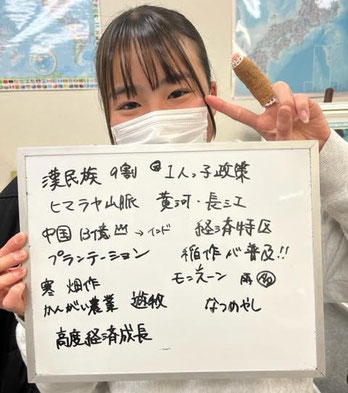 漢民族 9割 1人っ子政策
ヒマラヤ山脈 黄河・長江
中国 13億 → インド 経済特区
プランテーション 稲作が普及!!
寒 畑作 モンスーン 雨
かんがい農業 遊牧 なつめやし
高度経済成長